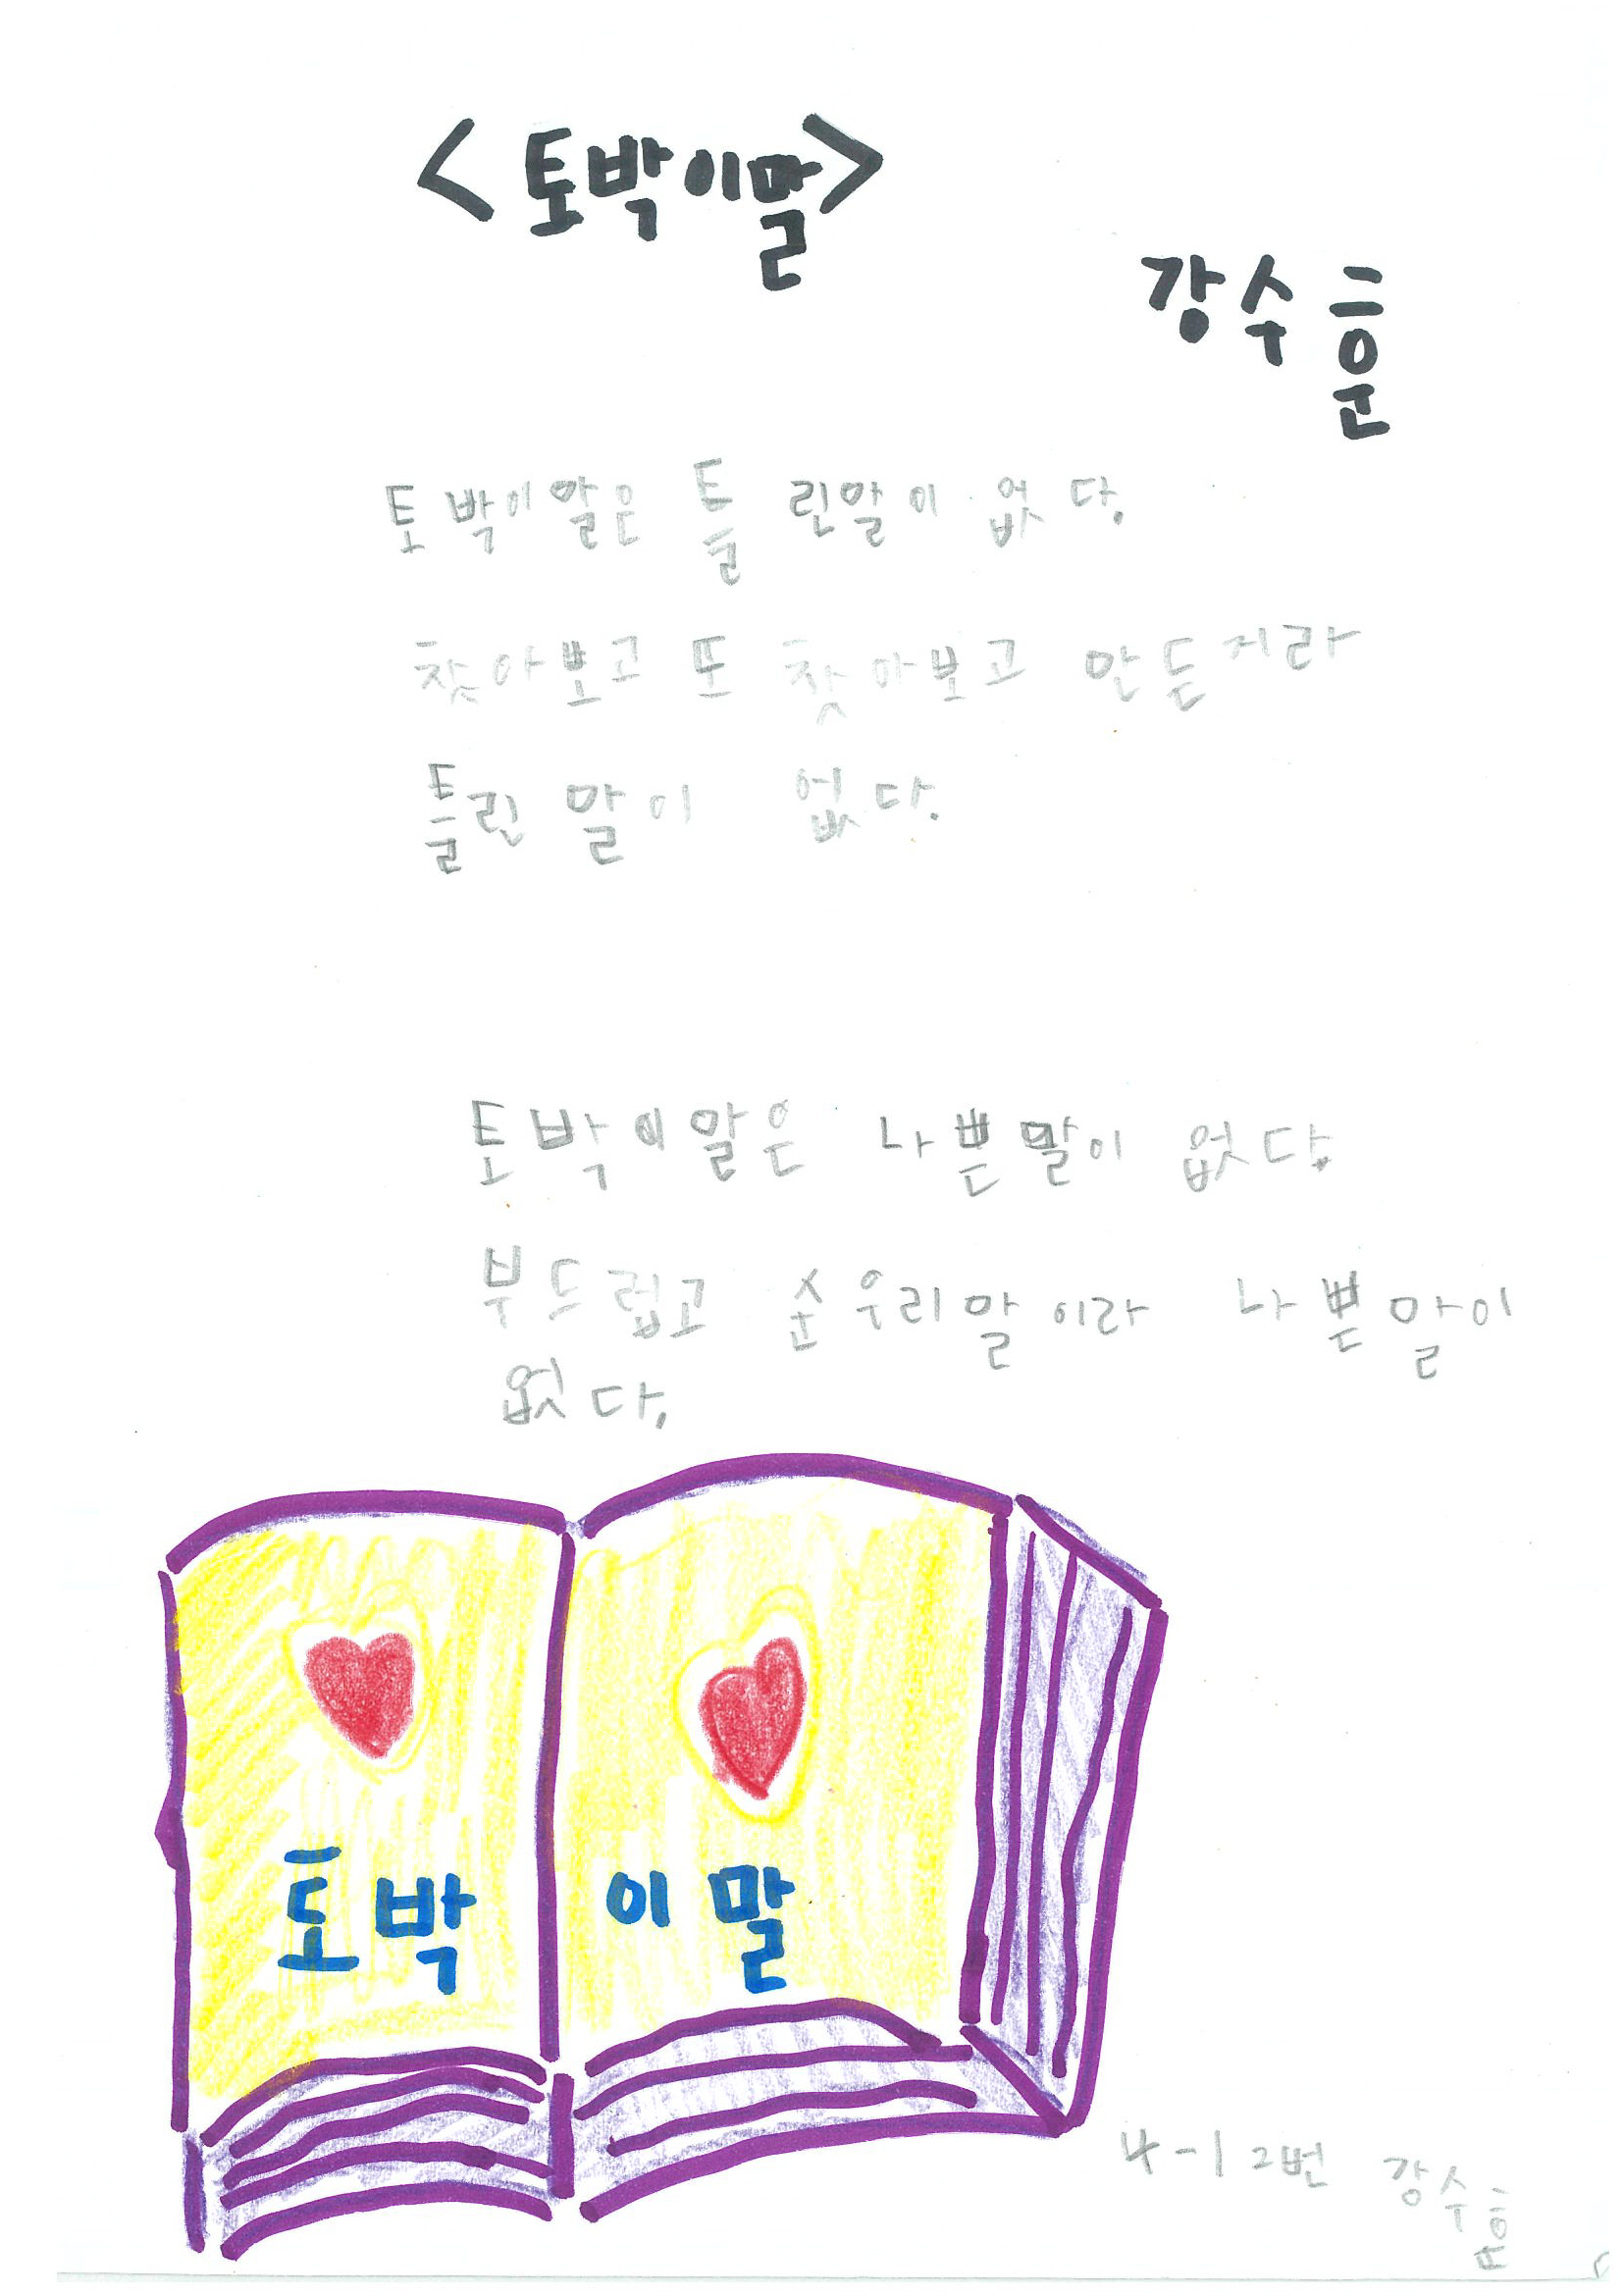 <토박이말>
강수훈
토박이말은 틀린말이 없다.
찾아보고 또 찾아보고 만든지라
틀린 말이 없다.
토박이말은 나쁜말이 없다.
부드럽고 순우리말이라 나쁜말이
없다.
토박 이말
4-1 2번 강수훈